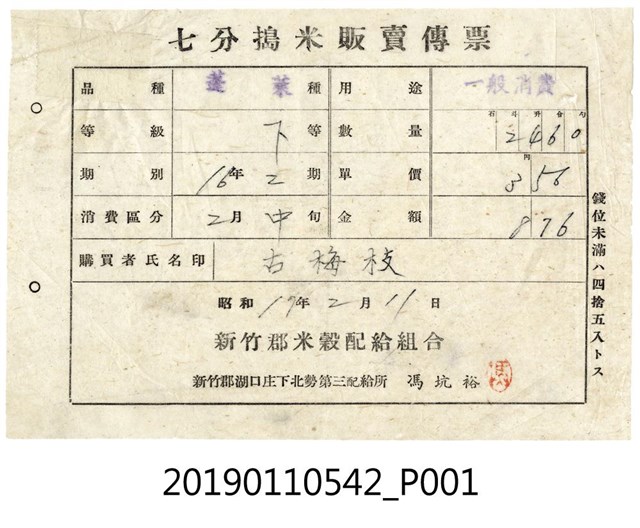 七分搗米販賣傳票
品種 蓬萊種 用途 一般消費
等級 下等 數量 石斗升合勺 2460
期別 16年2期 單價 円 356
消費區分 2月中旬 金額 876
購買者氏名印 古梅枝
昭和17年2月11日
新竹郡米穀配給組合
新竹郡湖口庄下北勢第三配給所 馮坑裕
錢位未滿ハ四捨五入トス
20190110542_P001